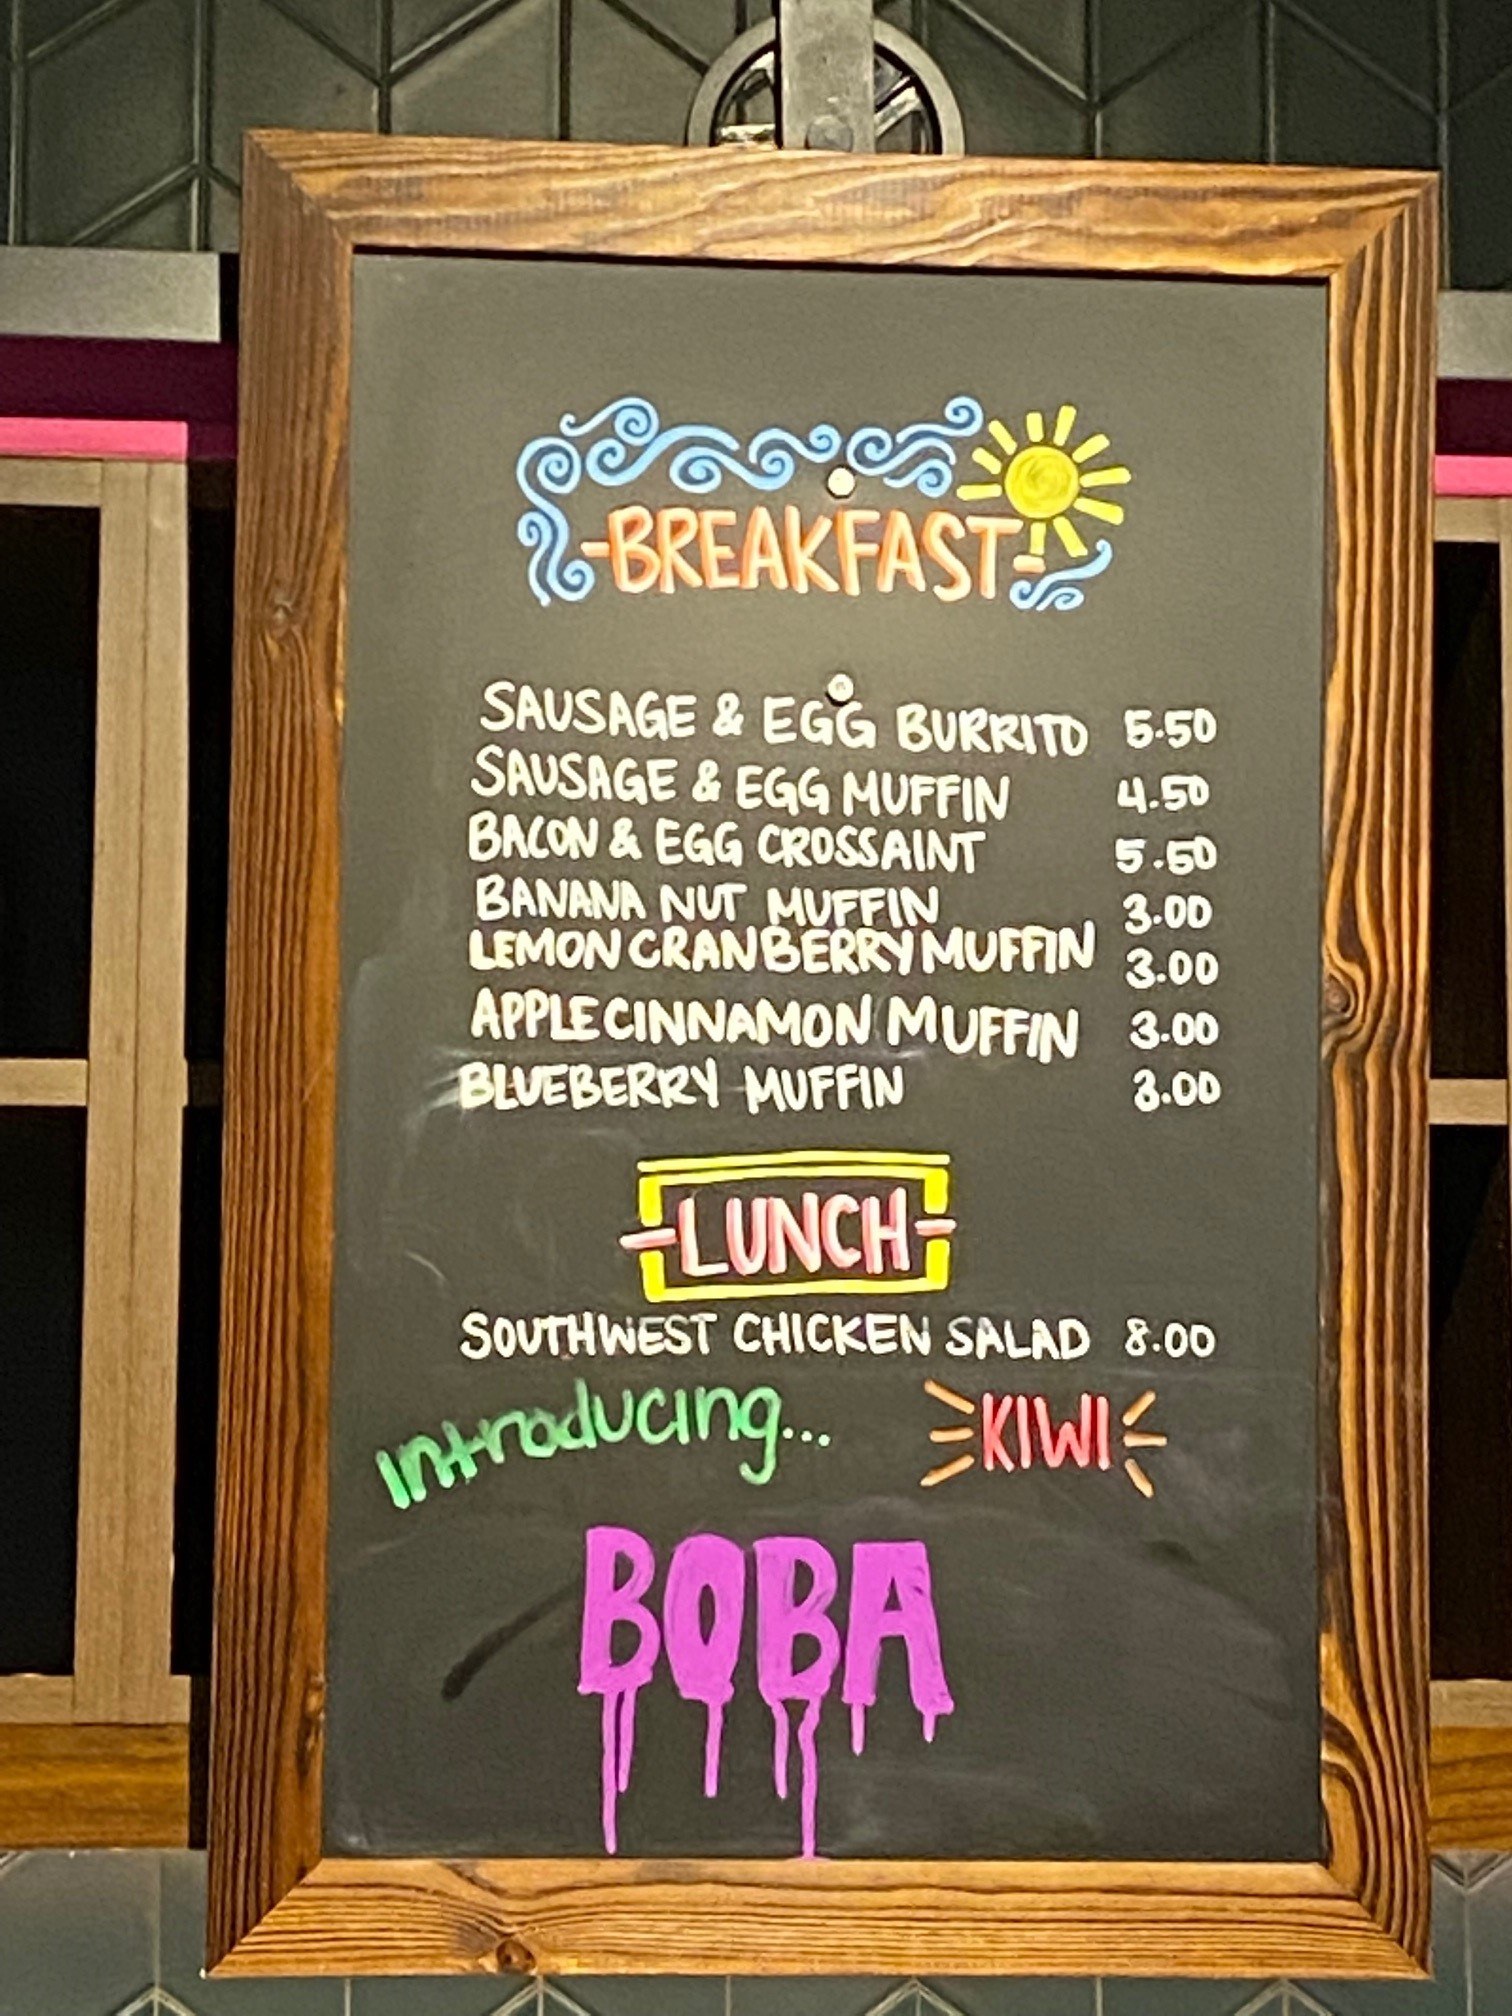 -BREAKFAST-
SAUSAGE & EGG BURRITO 5.50
SAUSAGE & EGG MUFFIN 4.50
BACON & EGG CROSSAINT 5.50
BANANA NUT MUFFIN 3.00
LEMON CRANBERRY MUFFIN 3.00
APPLE CINNAMON MUFFIN 3.00
BLUEBERRY MUFFIN 3.00
-LUNCH-
SOUTHWEST CHICKEN SALAD 8.00
introducing... KIWI
BOBA